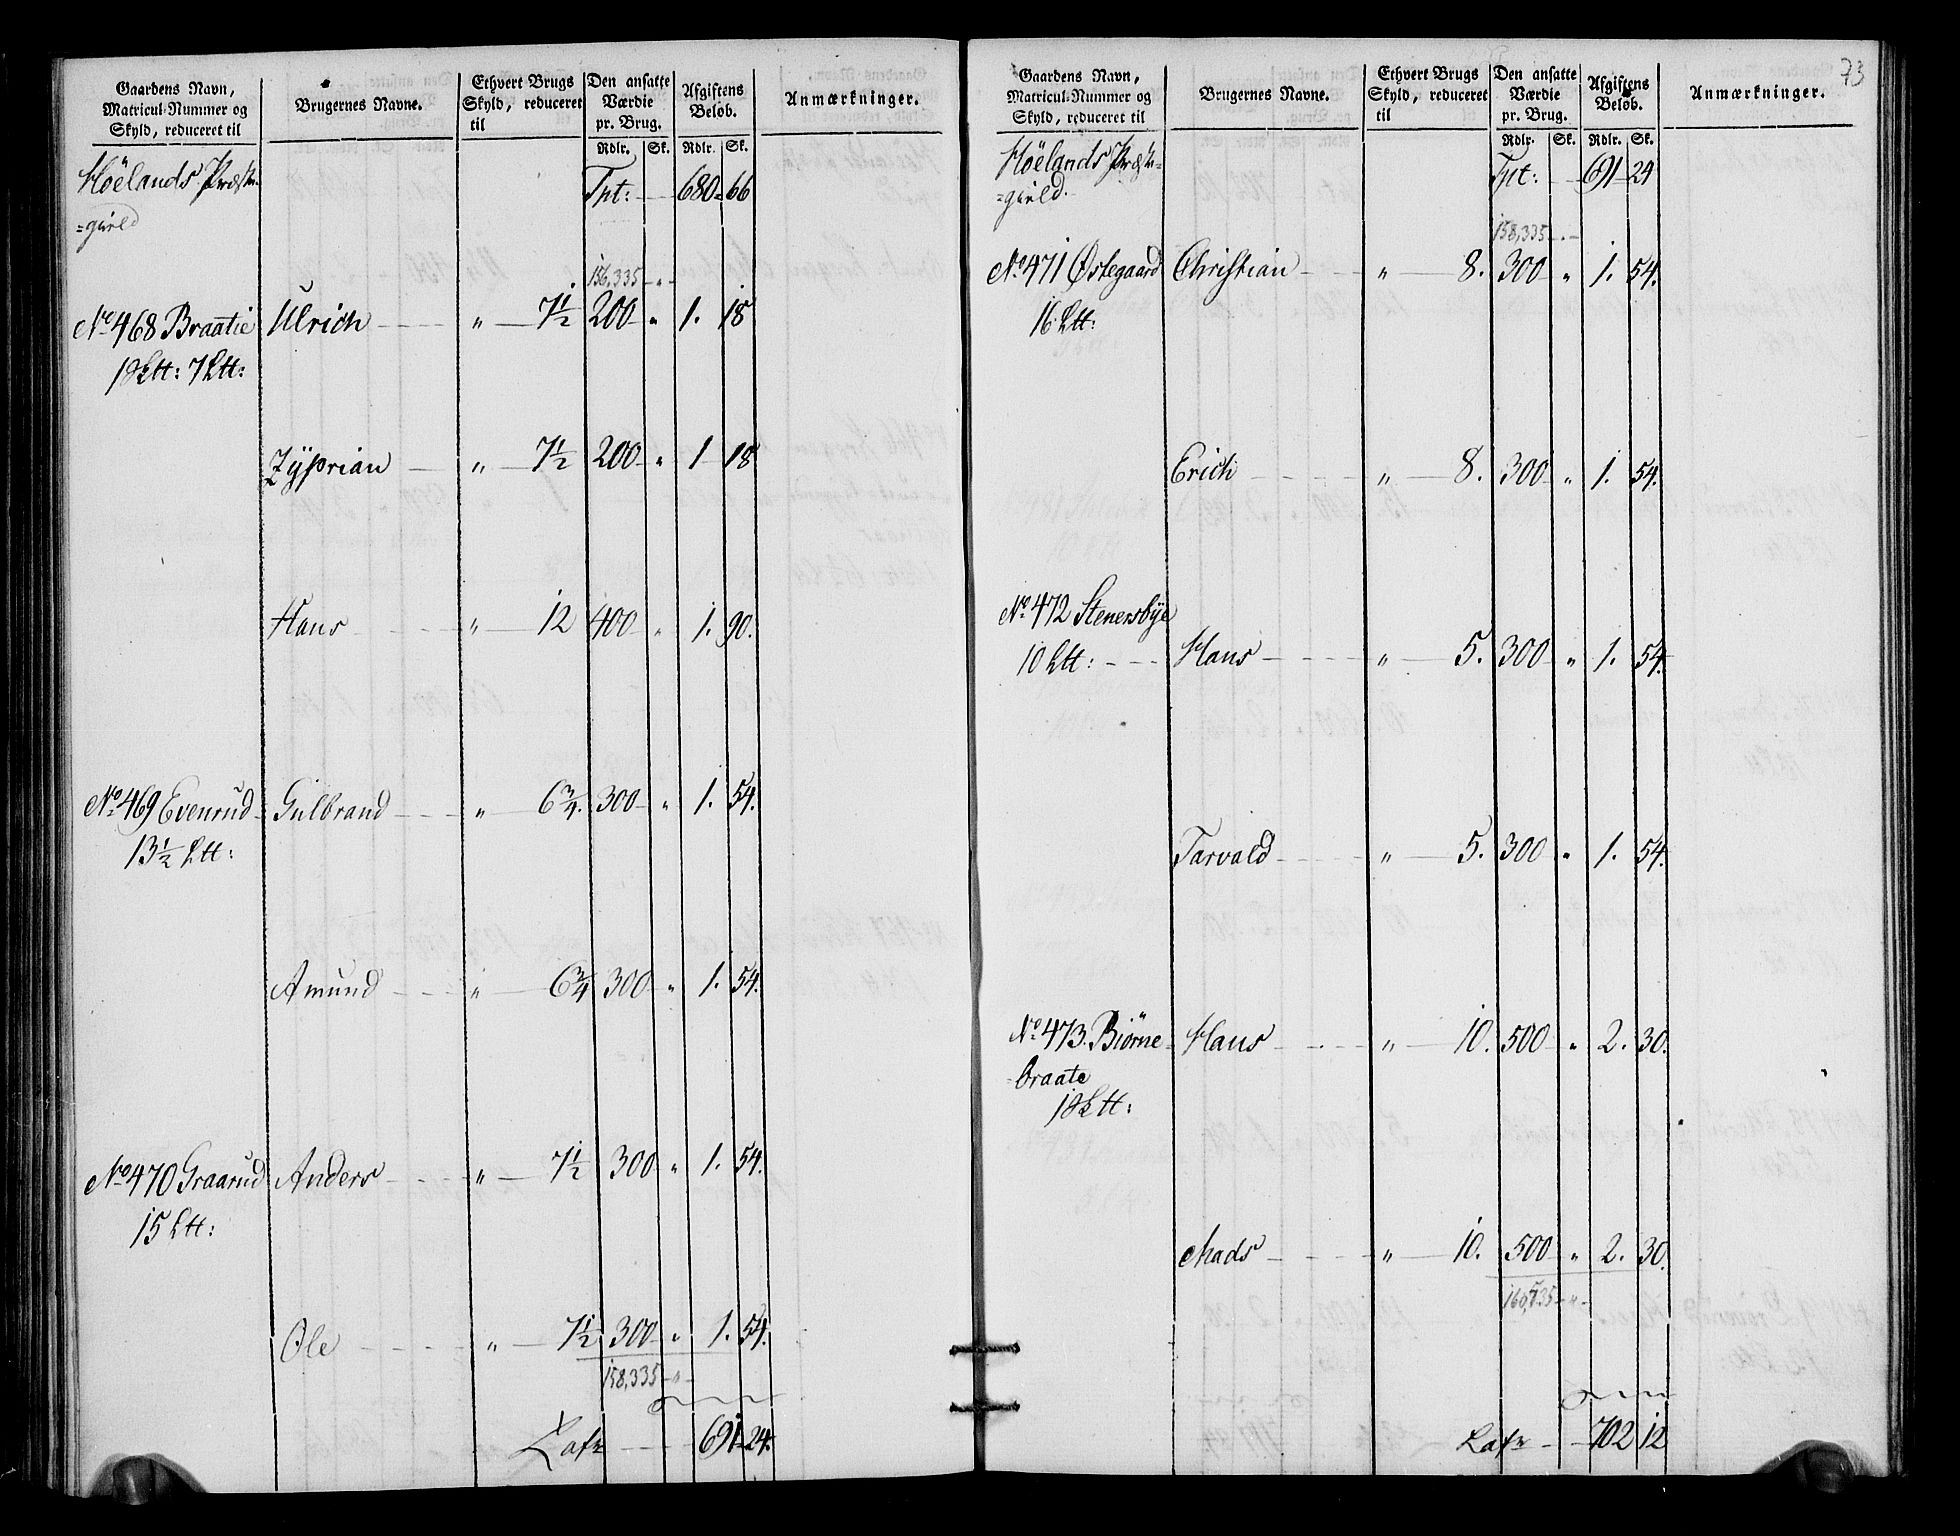 Gaardens Navn,
Matricul-Nummer og
Skyld, reduceret til
Brugernes Navne.
Ethvert Brugs
Skyld, reduceret
til
Den ansatte
Værdie
pr. Brug.
Afgiftens
Beløb.
Anmærkninger.
Rdlr. Sk. Rdlr. Sk.
Höelands Præste- Tpt: 680 66
=gield
156,335 - " -
No 468 Braatie Ulrich " 7½ 200 " 1. 18
1 7 Ltt:
Zÿprian " 7½ 200 " 1 18
Hans " 12 400 " 1. 90.
No 469 Evenrud Gulbrand " 6¾. 300 " 1. 54.
13½ Ltt:
Amund " 6¾ 300 " 1. 54.
No 470 Graarud Anders " 7½ 300 " 1. 54.
15 Ltt:
Ole " 7½ 300 " 1. 54.
158,335 - " -
Lats 691 24.
73
Gaardens Navn,
Matricul-Nummer og
Skyld, reduceret til
Brugernes Navne.
Ethvert Brugs
Skyld, reduceret
til
Den ansatte
Værdie
pr. Brug.
Afgiftens
Beløb.
Anmærkninger.
Rdlr. Sk. Rdlr. Sk.
Höelands Præste- Tpt: 691 24
=gield.
158,335 - " -
No 471 Østegaard Christian " 8. 300 " 1. 54.
16 Ltt:
Erich " 8. 300 " 1. 54.
No 472 Stenersbÿe
10 Ltt: Hans " 5. 300 " 1. 54.
Tarvald " 5. 300 " 1. 54.
No 473. Biörne- Hans " 10. 500 " 2. 30.
braate
1 Ltt:
Mads " 10. 500 " 2. 30.
160,535 - " -
Lats 702 12